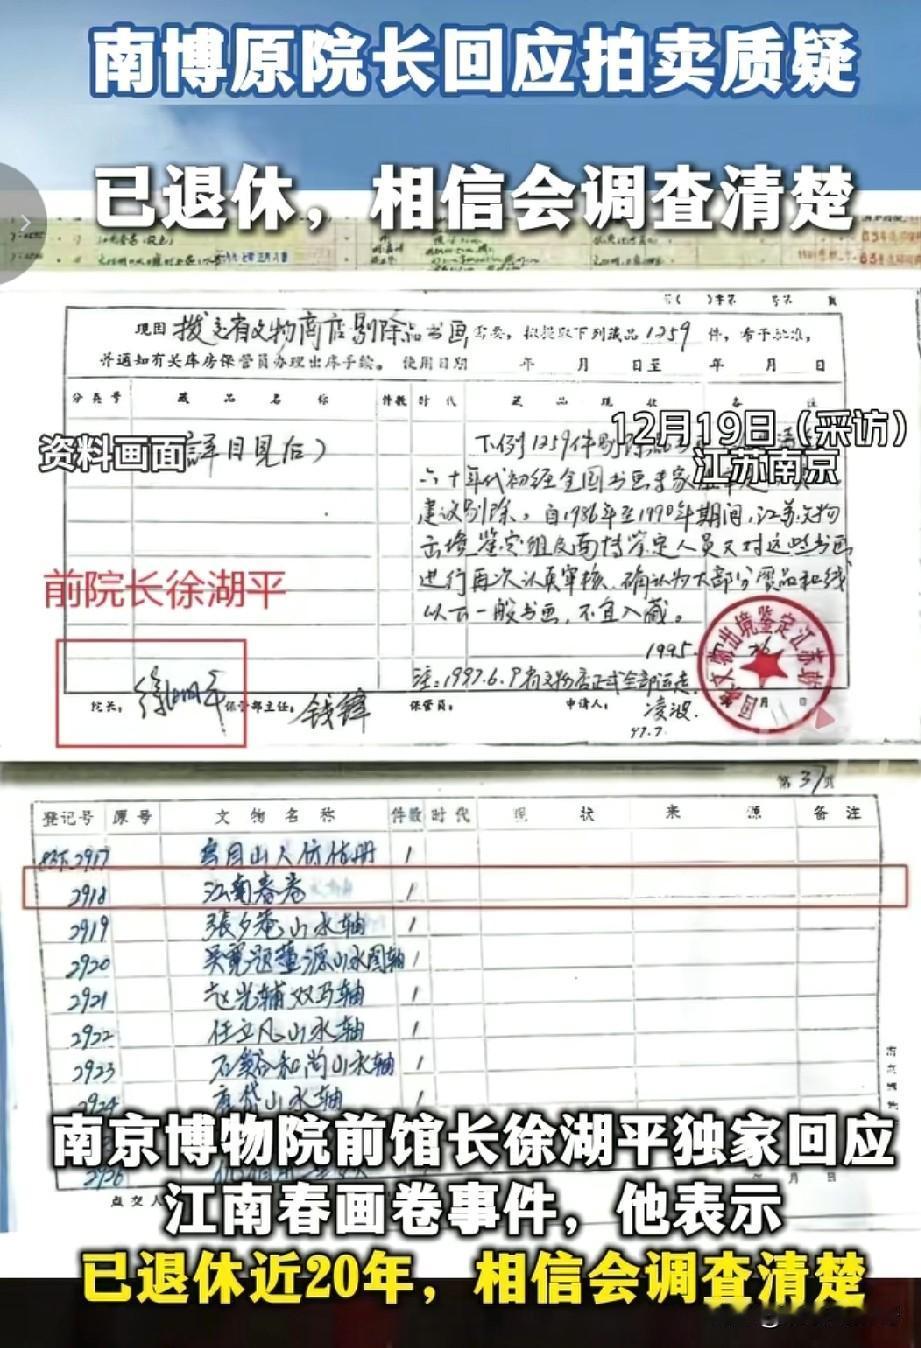 南博原院长回应拍卖质疑
已退休，相信会调查清楚
现因拨交省文物商店剔除品书画需要，拟提取下列藏品1259件，希予批准，
并通知有关库房保管员办理出库手续。 使用日期 年 月 日至 年 月 日
分类号 藏品名称 件数 时代 藏品现状 备注
12月19日（采访）
江苏南京
资料画面
（详目见后）
下列1259件剔除品
六十年代初经全国书画专家
建议剔除，自1986年至1990年期间，江苏文物
出境鉴定组及南博鉴定人员又对这些书画
进行再次认真审核，确认为大部分赝品和线
以下一般书画，不宜入藏。
前院长徐湖平
1995.
注：1997.6.9省文物店正式全部运走
院长： 徐湖平 保管部主任： 钱锋 保管员： 申请人： 凌波
97.7.
国家文物出境鉴定江苏站
第37页
登记号 原号 文物名称 件数 时代 现状 来源 备注
2917 仿 册 1
2918 江南春卷 1
2919 张夕庵山水轴 1
2920 吴宽题董源山水图轴 1
2921 赵光辅双马轴 1
2922 任立凡山水轴 1
2923 石溪和尚山水轴 1
2924 山水轴
2926
点交人
南京博物院前馆长徐湖平独家回应
江南春画卷事件，他表示
已退休近20年，相信会调查清楚